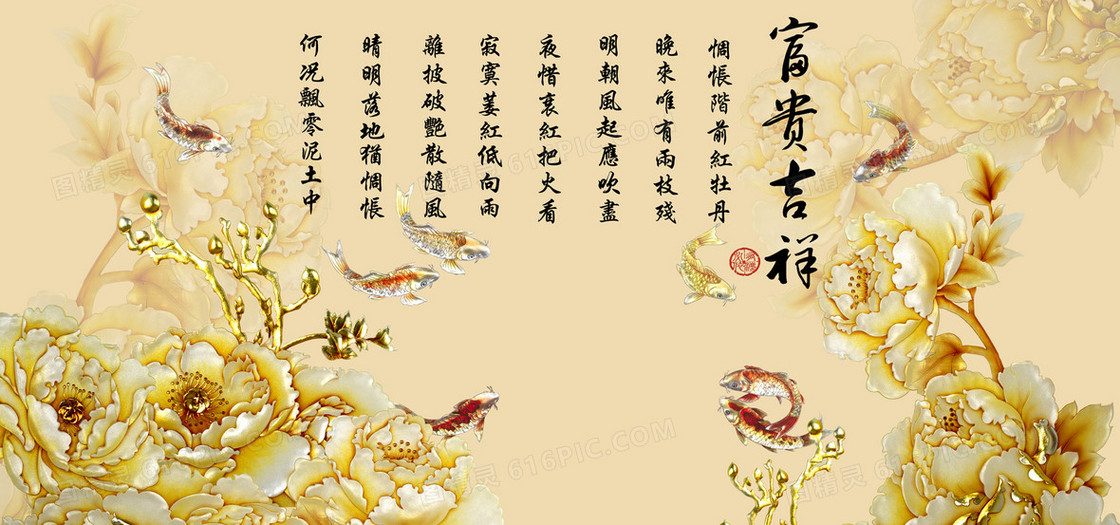 富貴吉祥
惆悵階前紅牡丹
晚來唯有兩枝殘
明朝風起應吹盡
夜惜衰紅把火看
寂寞萎紅低向雨
離披破艷散隨風
晴明落地猶惆悵
何況飄零泥土中
图精灵 616PIC.COM